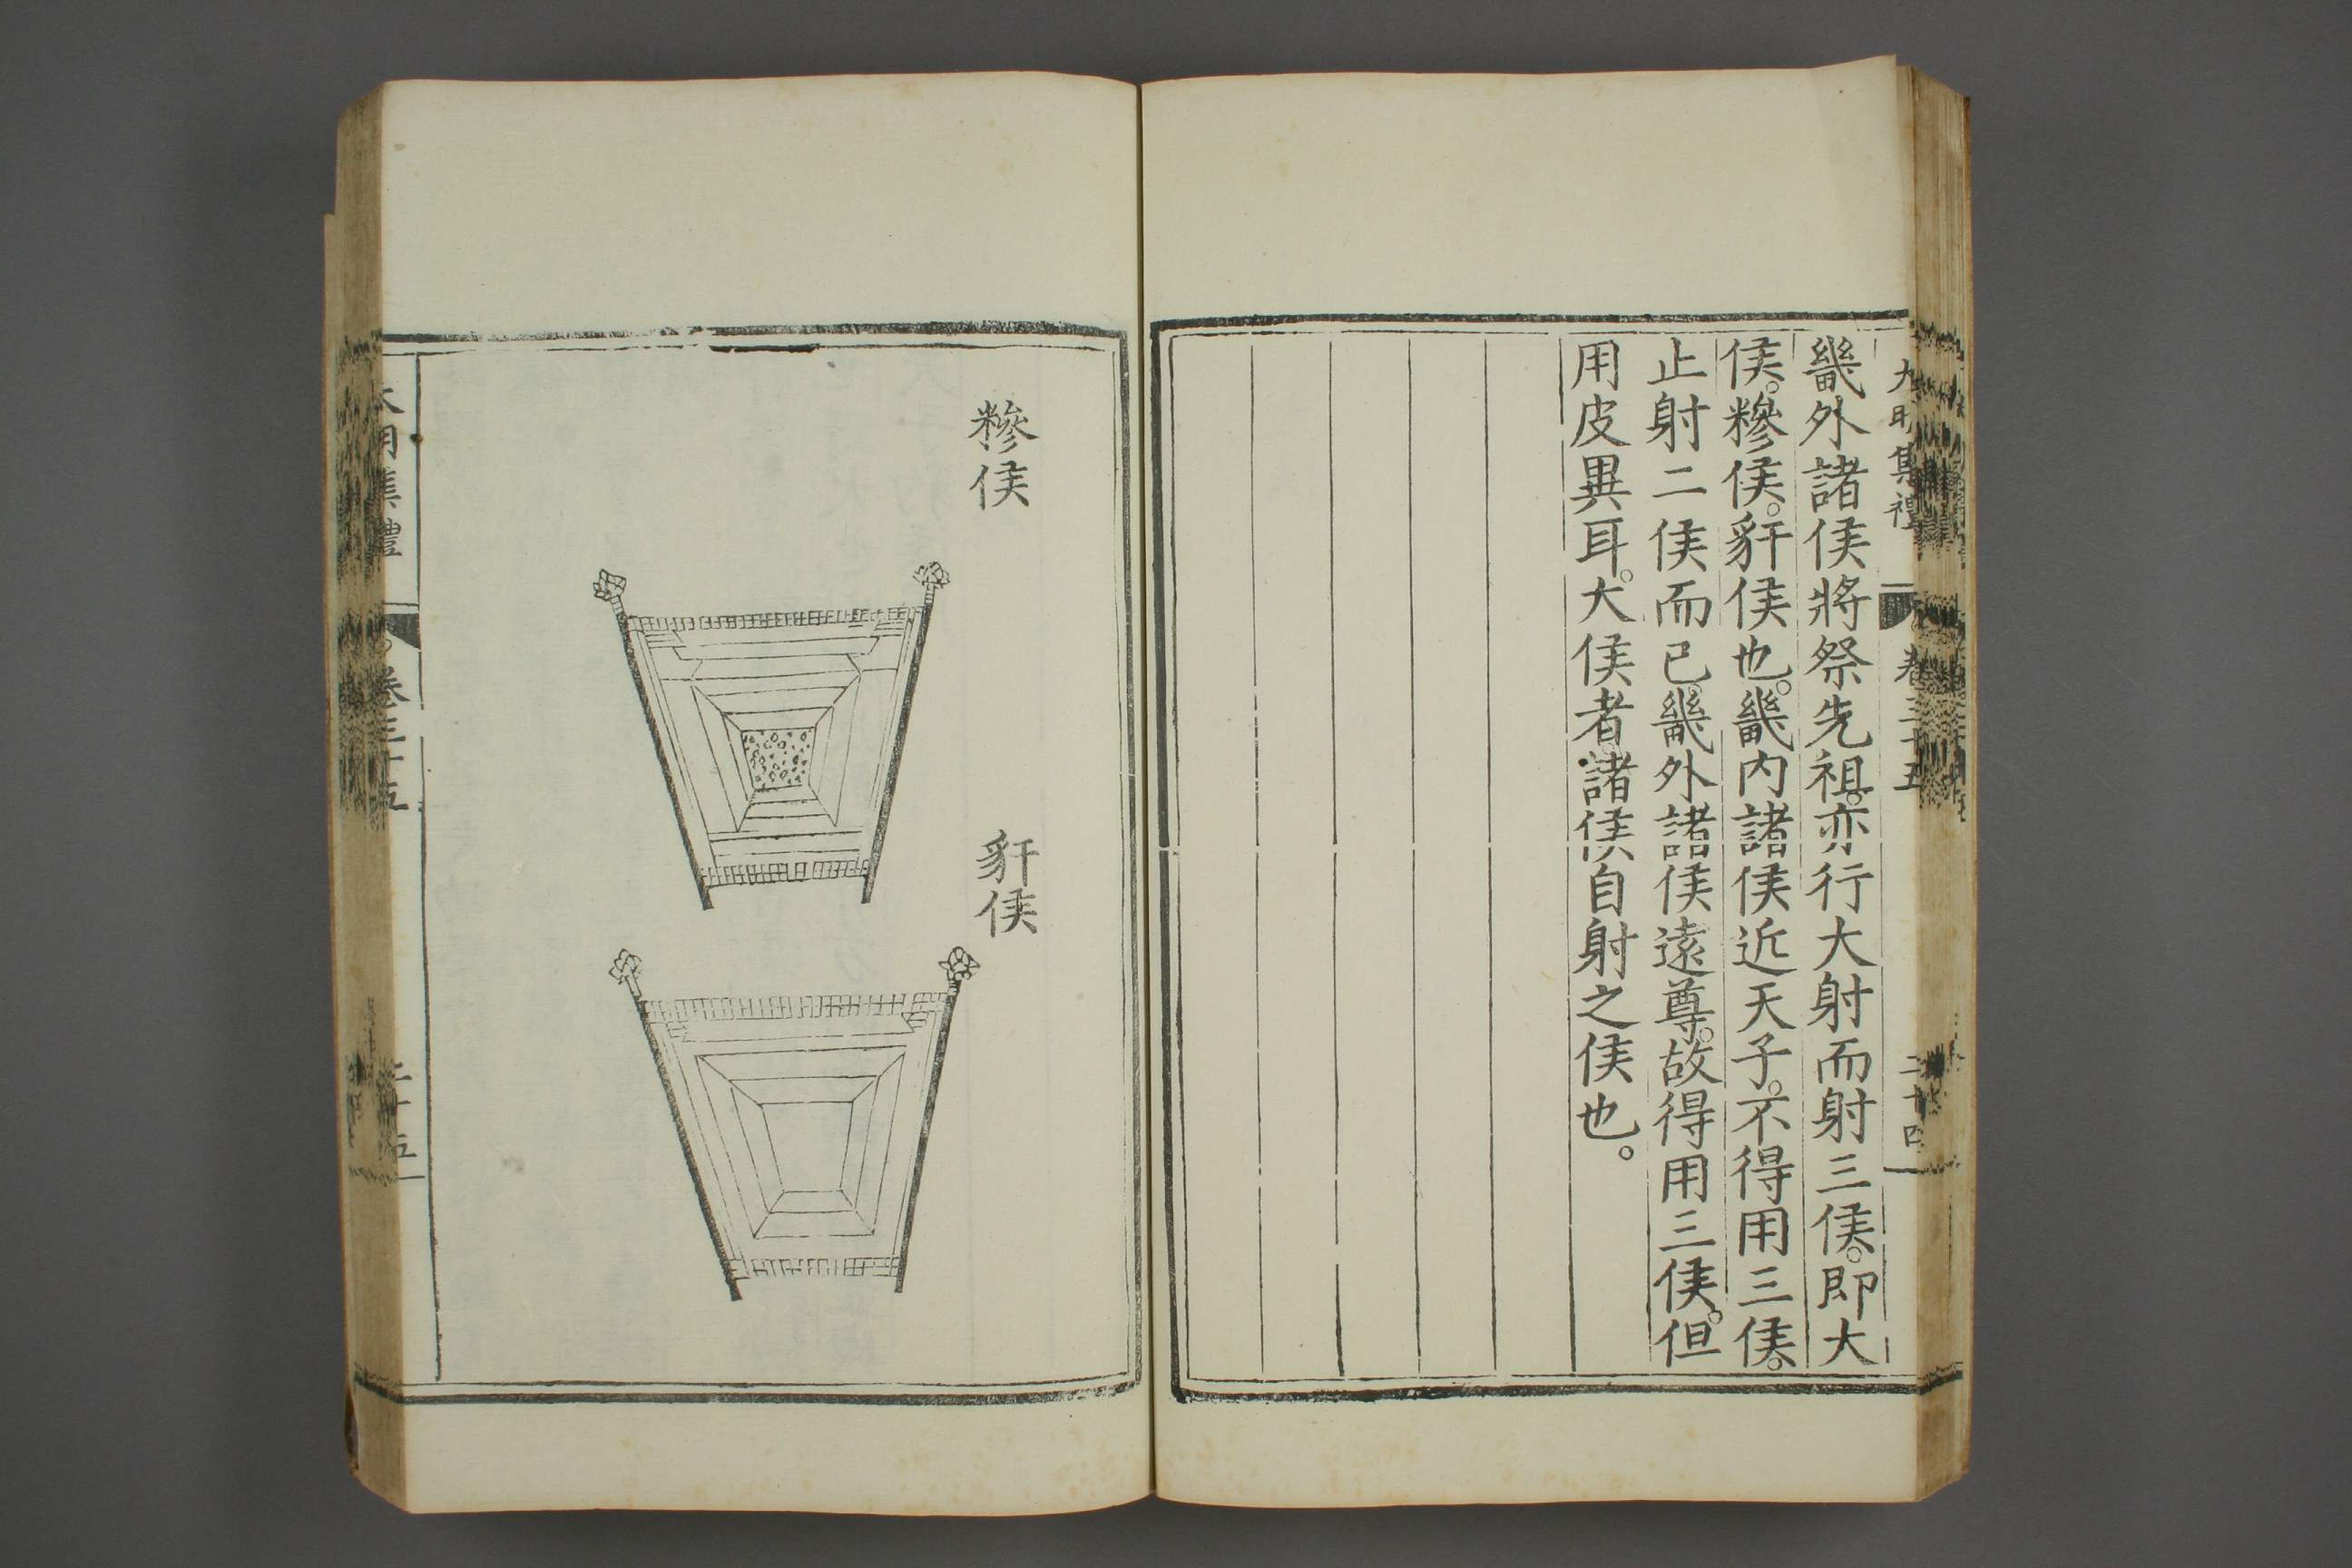 大明集禮 卷三十五 二十四
畿外諸侯將祭先祖。亦行大射而射三侯。即大
侯。糝侯。豻侯也。畿内諸侯近天子。不得用三侯。
止射二侯而已。畿外諸侯遠尊。故得用三侯。但
用皮異耳。大侯者。諸侯自射之侯也。
糝侯
豻侯
大明集禮 卷三十五 二十五